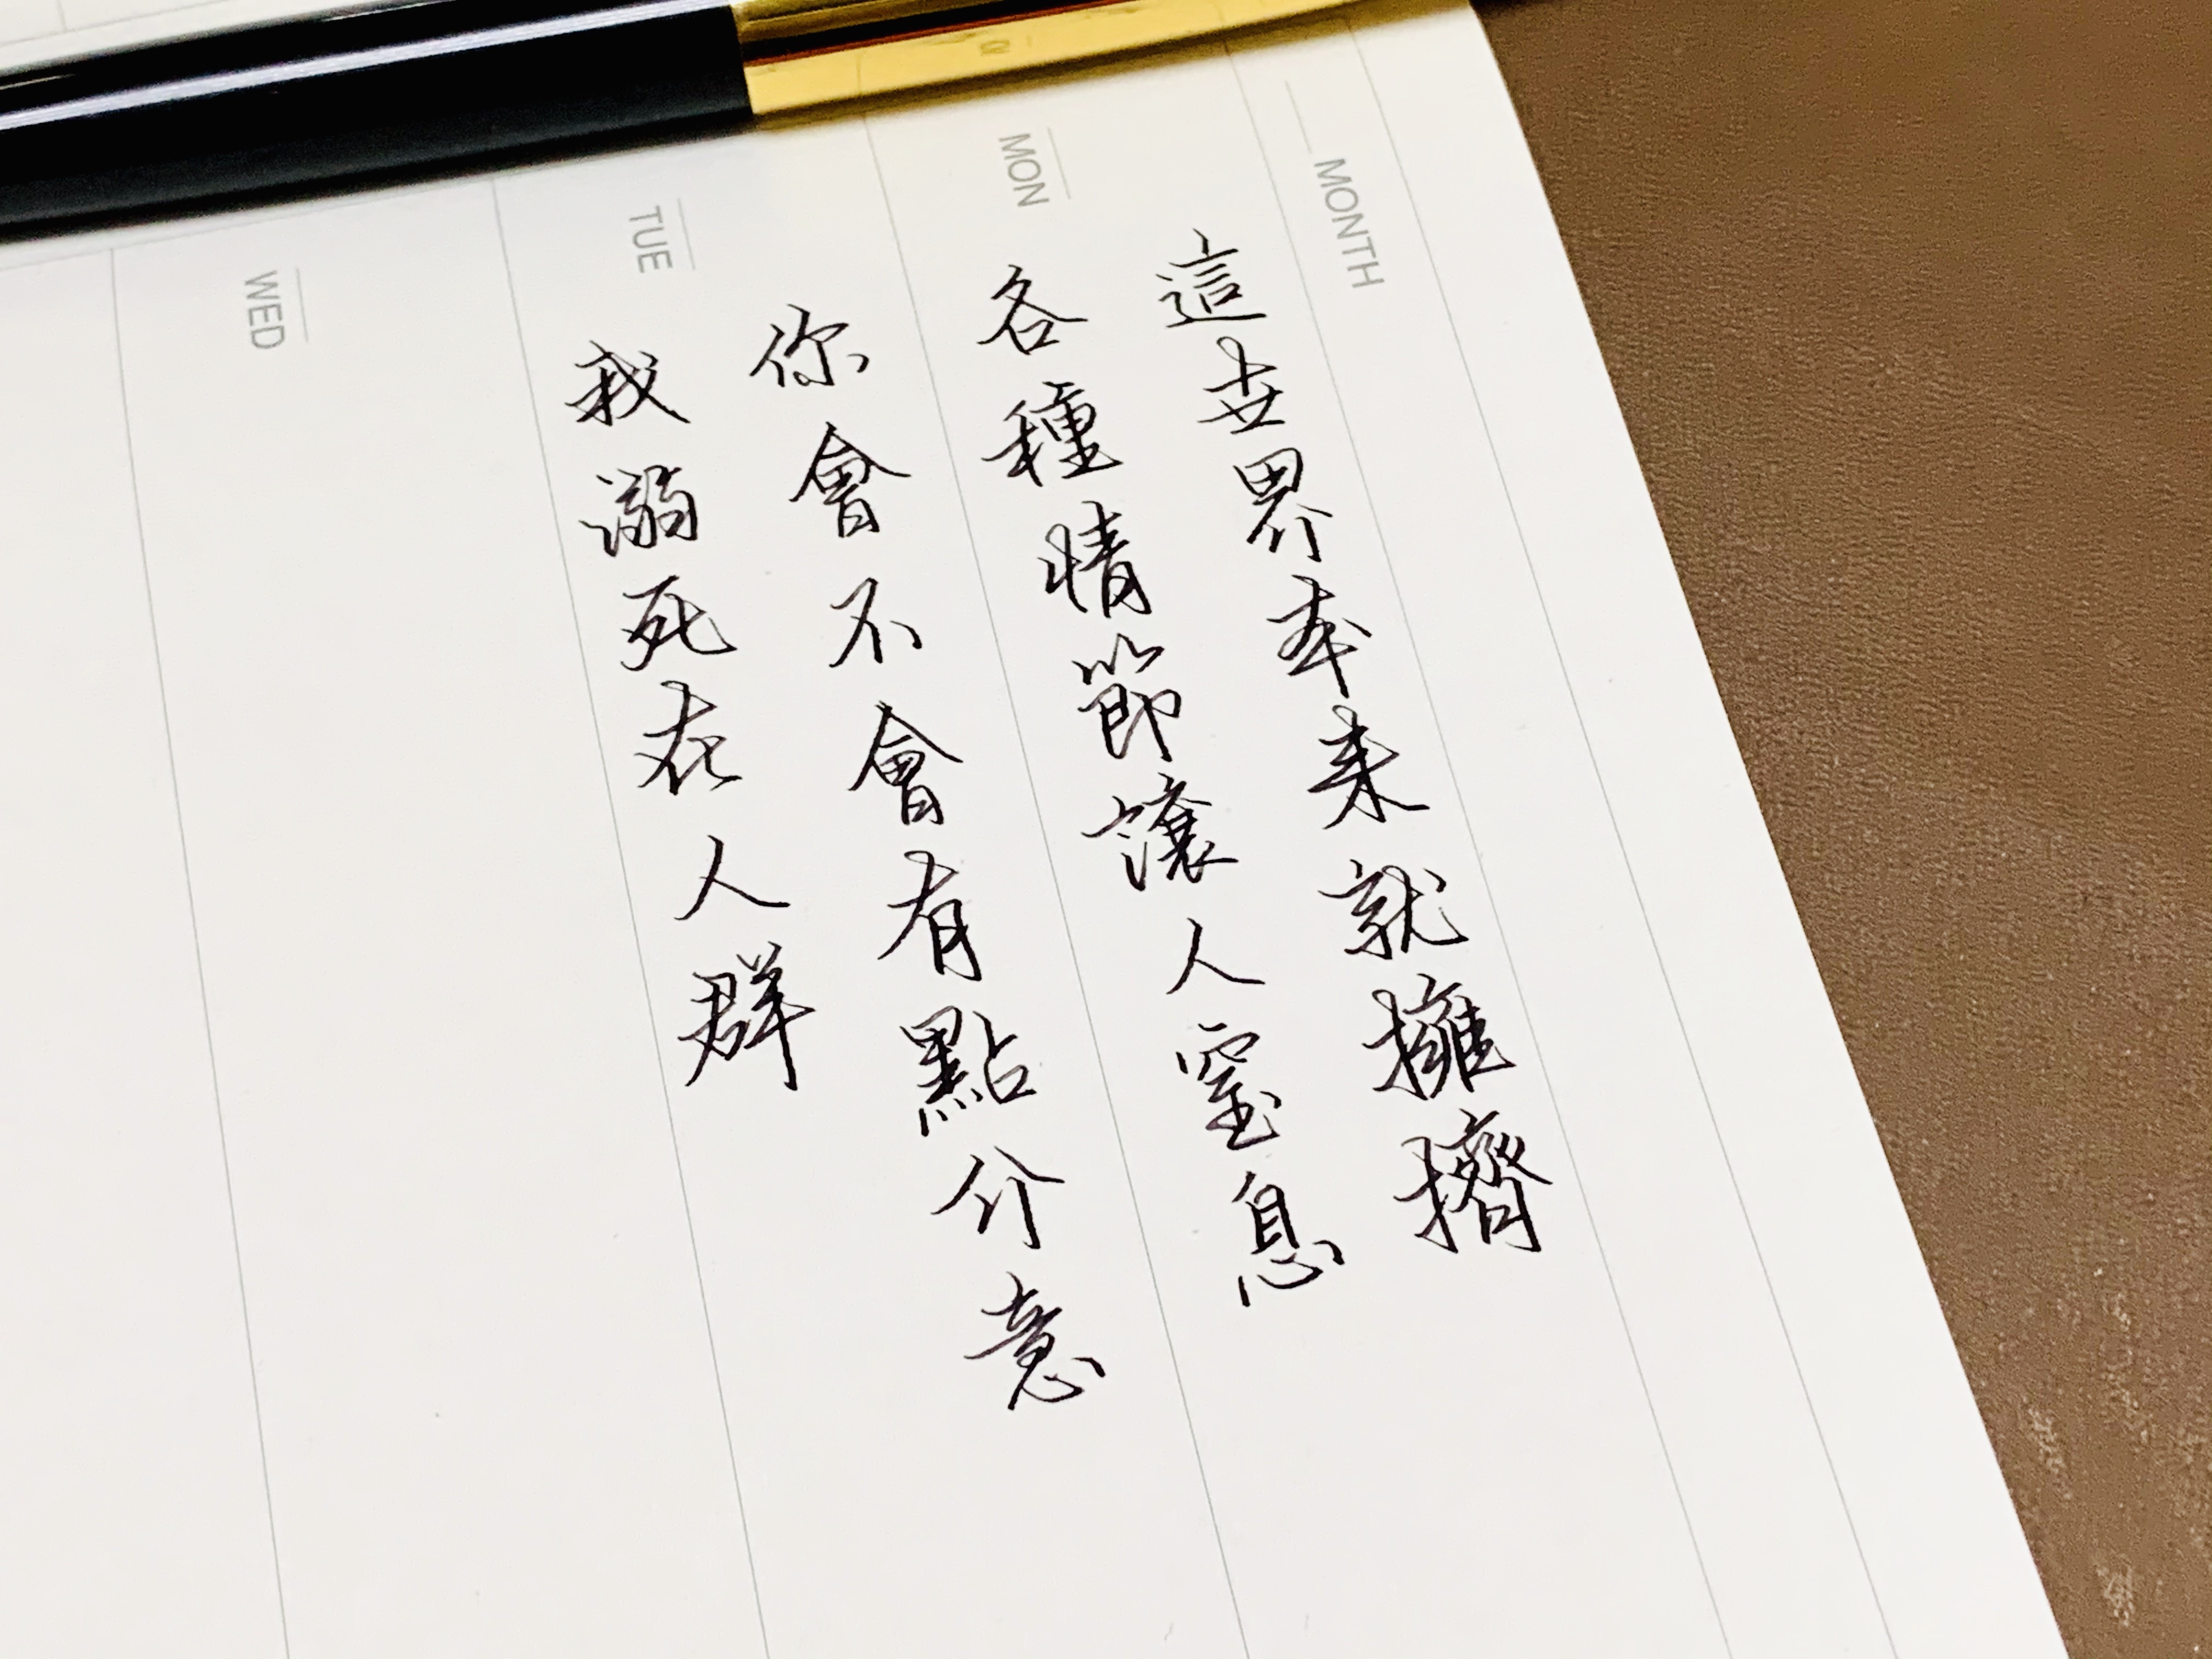 MONTH
MON
TUE
WED
這世界本来就擁擠
各種情節讓人窒息
你會不會有點介意
我溺死在人群